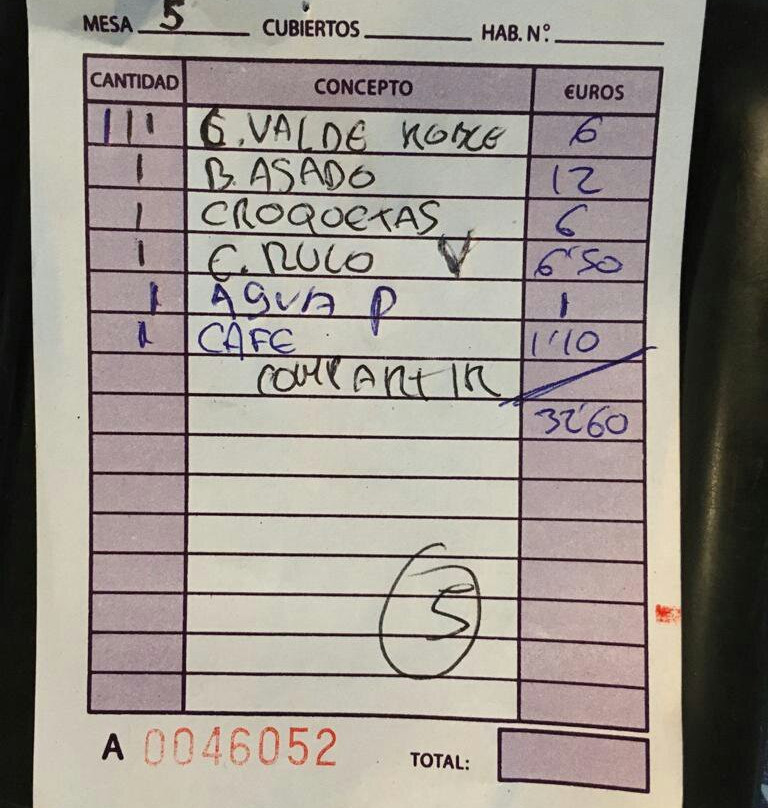 MESA 5 CUBIERTOS HAB. N.º
CANTIDAD CONCEPTO €UROS
III 6
I B. ASADO 12
I CROQUETAS 6
I C. RULO V 6'50
I AGUA P 1
I CAFE 1'10
COMPARTIR
32'60
5
A 0046052 TOTAL: